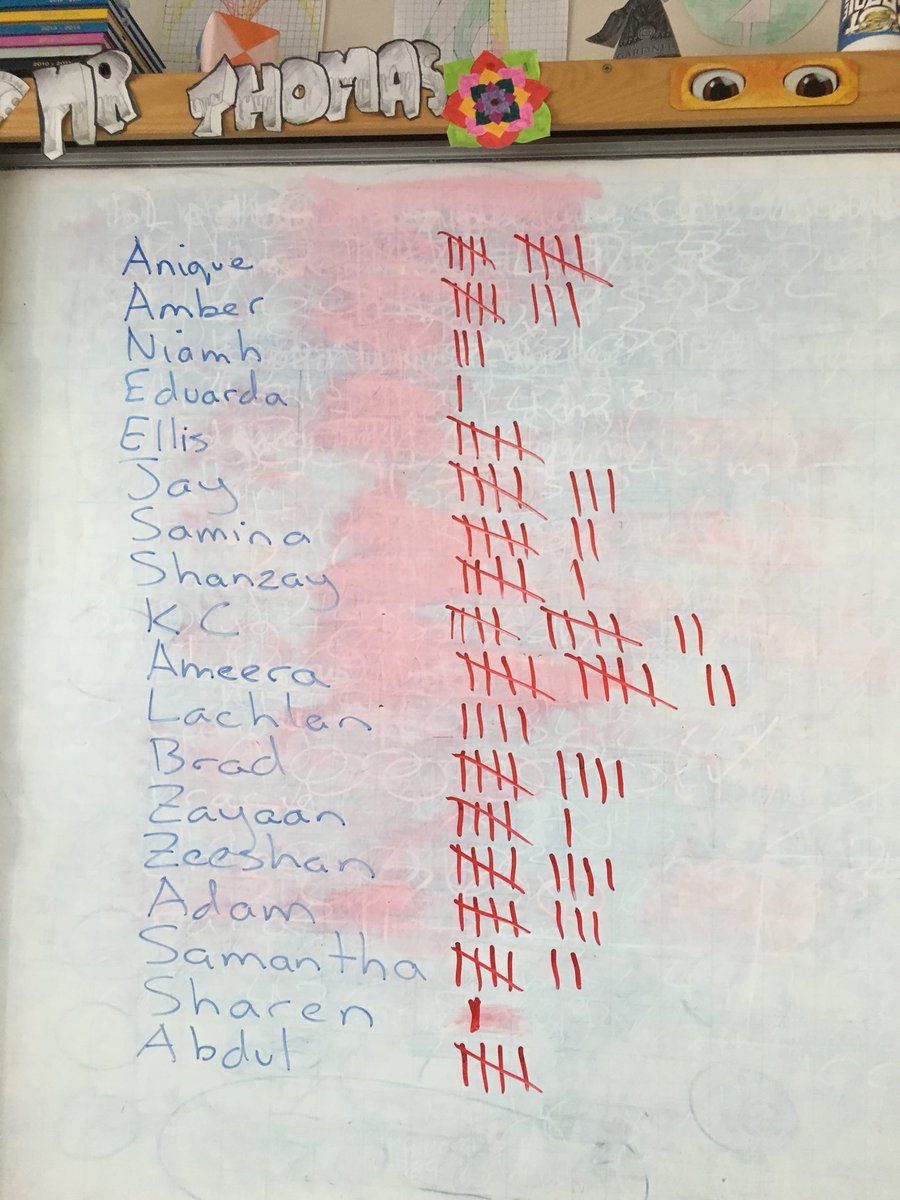 MR THOMAS
Anique
Amber
Niamh
Eduarda
Ellis
Jay
Samina
Shanzay
K C
Ameera
Lachlan
Brad
Zayaan
Zeeshan
Adam
Samantha
Sharen
Abdul